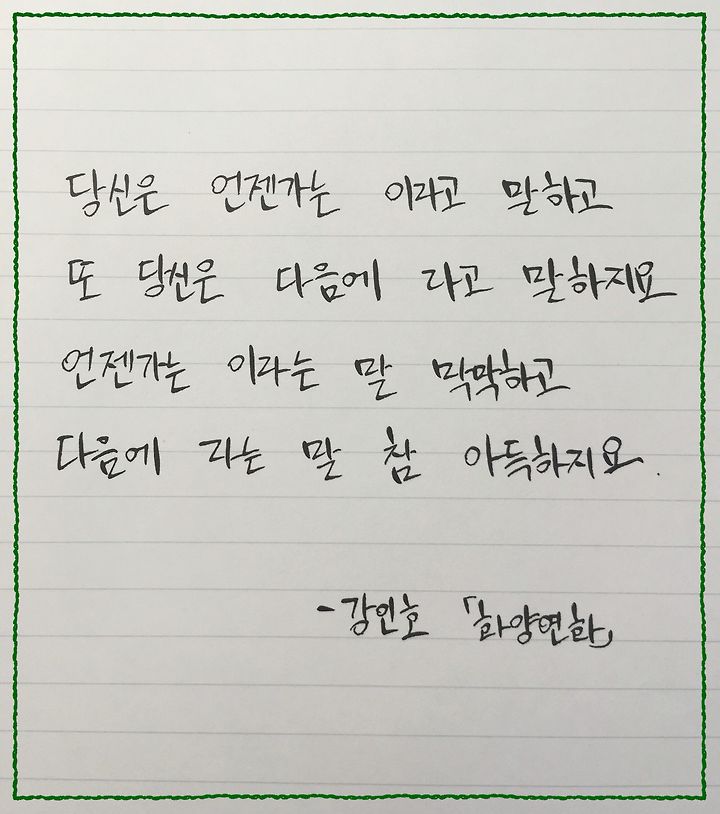 당신은 언젠가는 이라고 말하고
또 당신은 다음에 라고 말하지요
언젠가는 이라는 말 막막하고
다음에 라는 말 참 아득하지요.
-강인호 「화양연화」